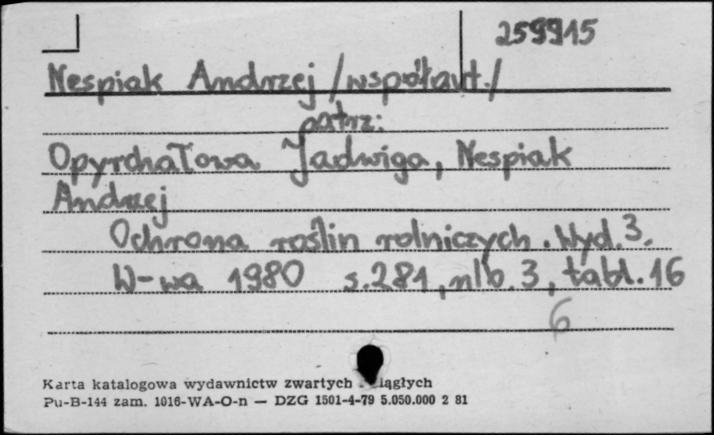 259915
Nespiak Andrzej /współaut./
patrz:
Opyrchałowa Jadwiga, Nespiak
Andrzej
Ochrona roślin rolniczych. Wyd. 3.
W-wa 1980 s. 281, nlb. 3, tabl. 16
6
Karta katalogowa wydawnictw zwartych ciągłych
Pu-B-144 zam. 1016-WA-O-n — DZG 1501-4-79 5.050.000 2 81